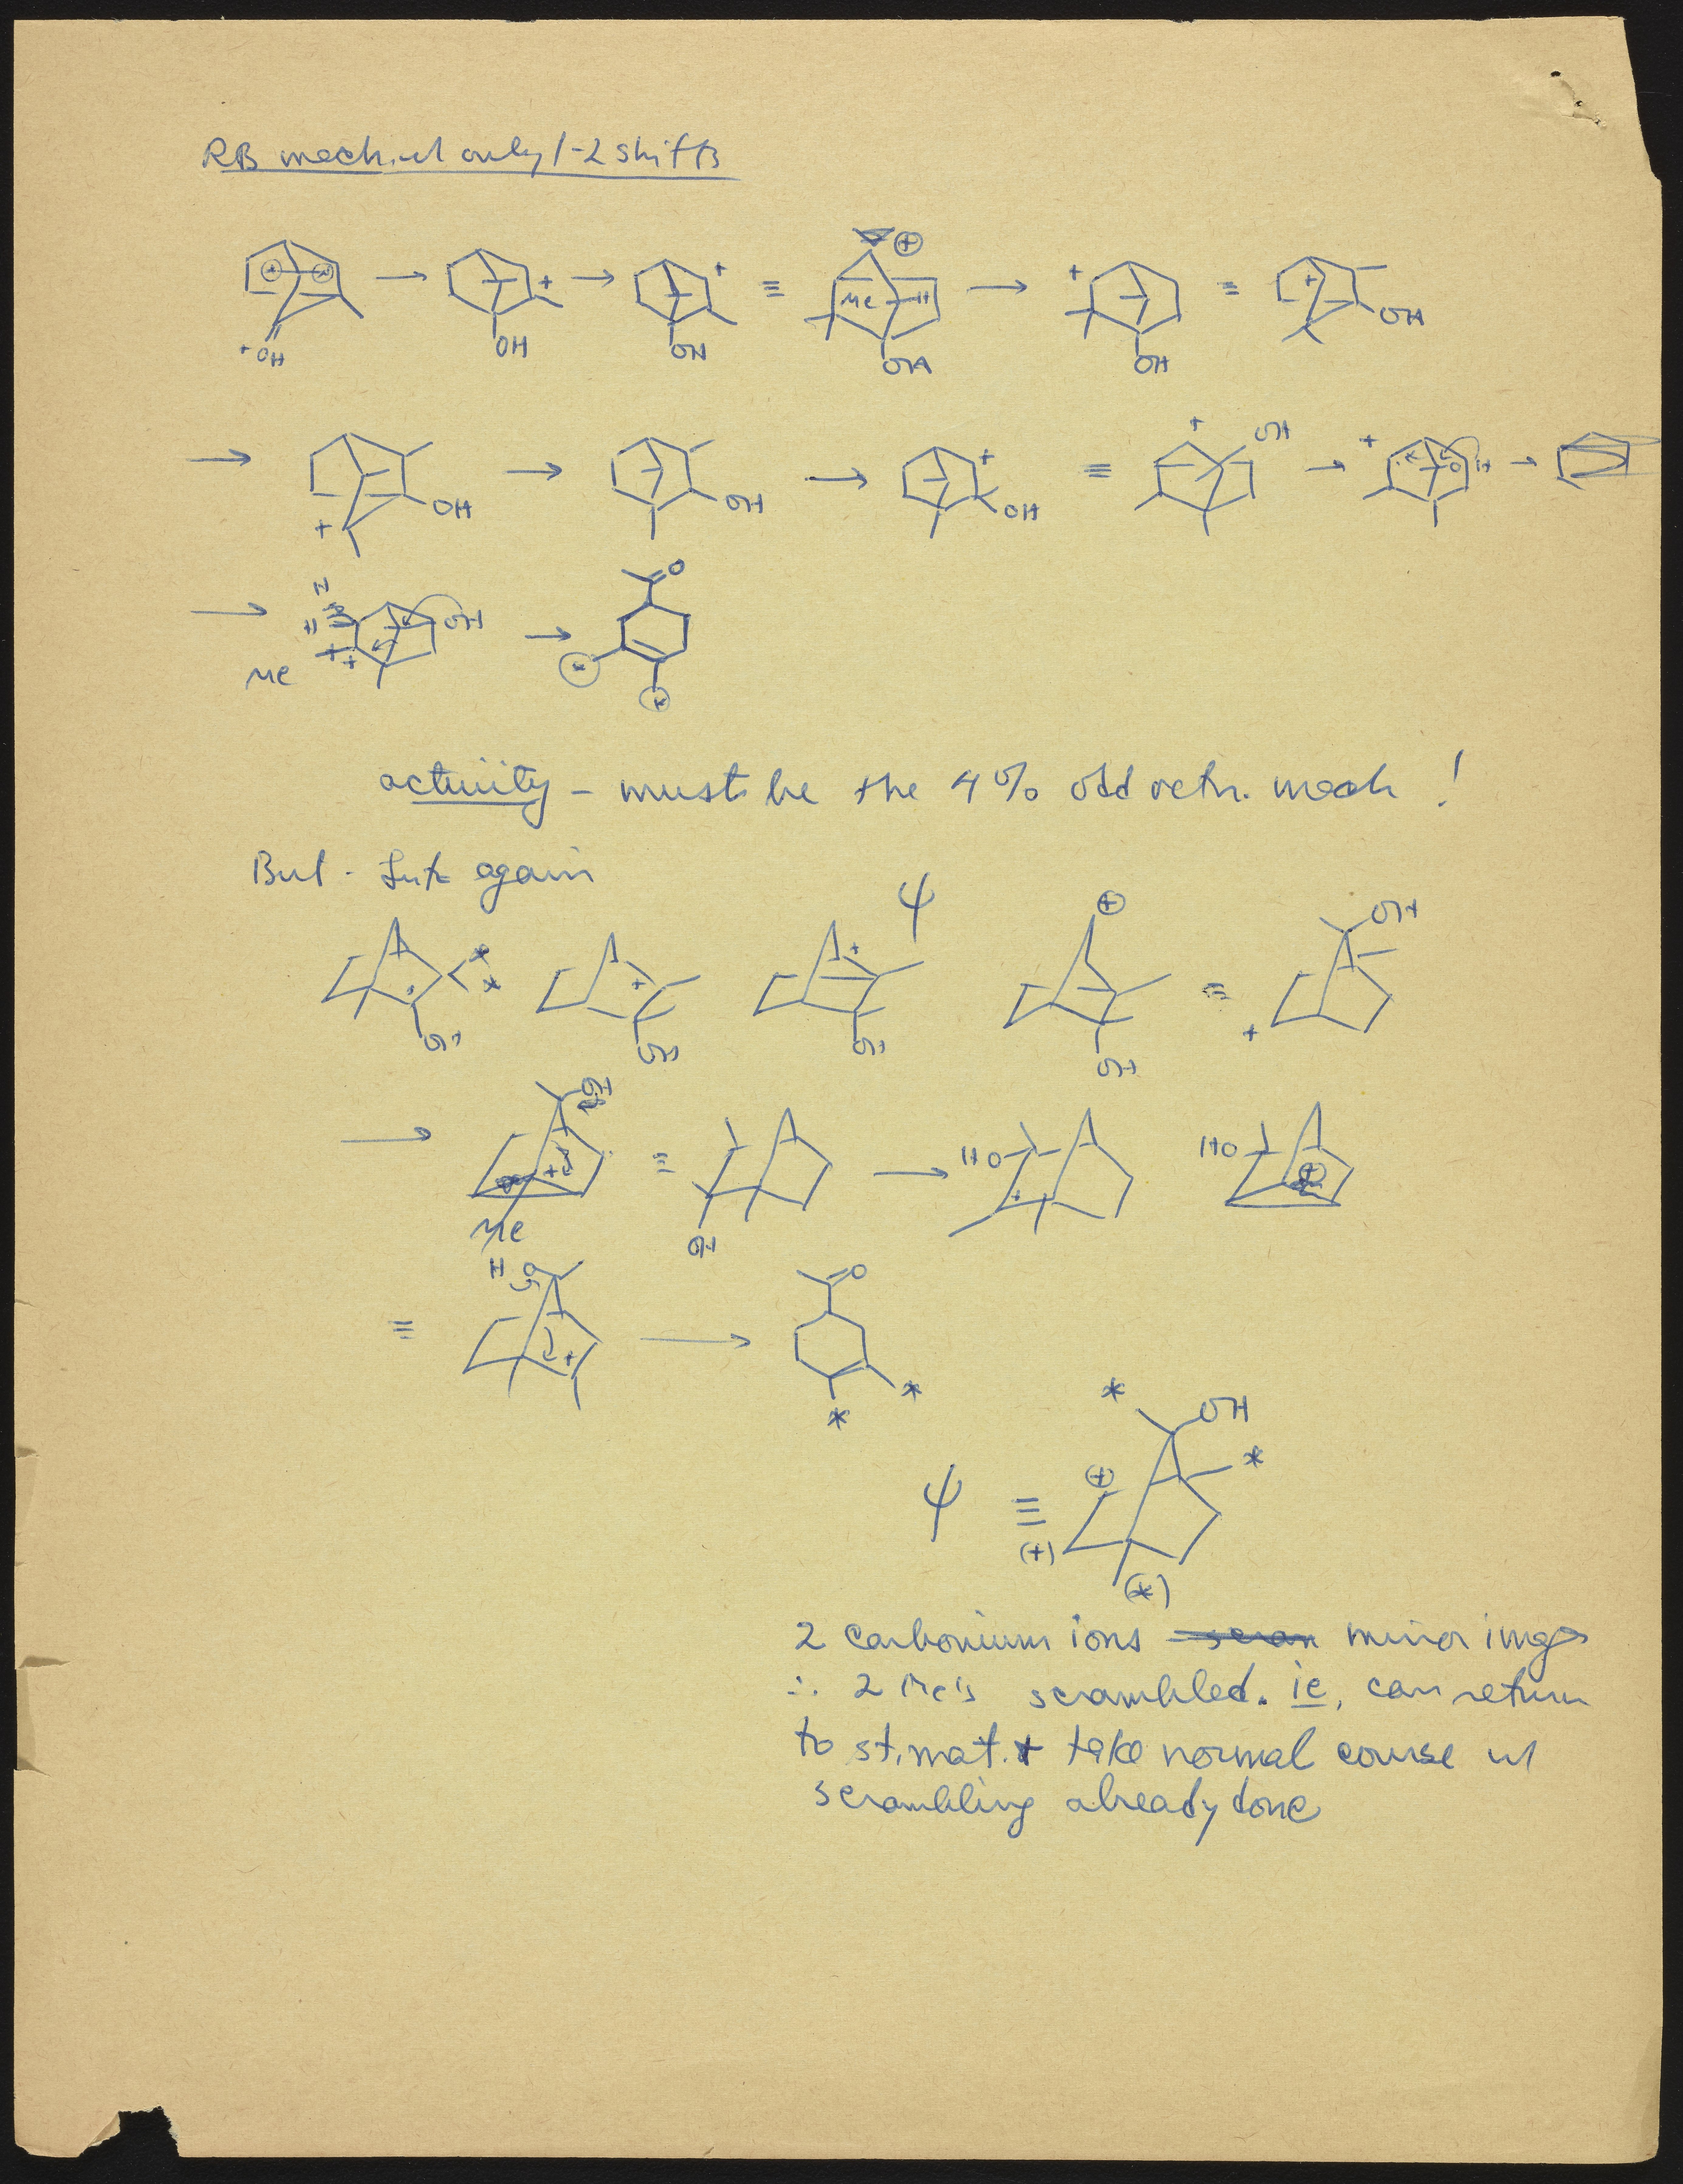 RB mech. w/ only 1-2 shifts
+ + OH
+ OH
+ OH
≡
+ Me H OH
+ OH
≡
+ OH
→ + OH
→ OH
→ + OH
≡
+ OH
→ +
→
→ H H Me + OH
→ O * *
activity - must be the 4% odd retn. mech !
But - again
* * OH
+ OH
+ OH ψ
+ OH
≡
OH +
→ OH + Me
≡
OH
→ HO +
HO +
≡ HO +
→ O * *
ψ ≡ * OH * (+) (+) (*)
2 carbonium ions mirror imgs
∴ 2 Me's scrambled. ie, can return
to st. mat. + take normal course w/
scrambling already done